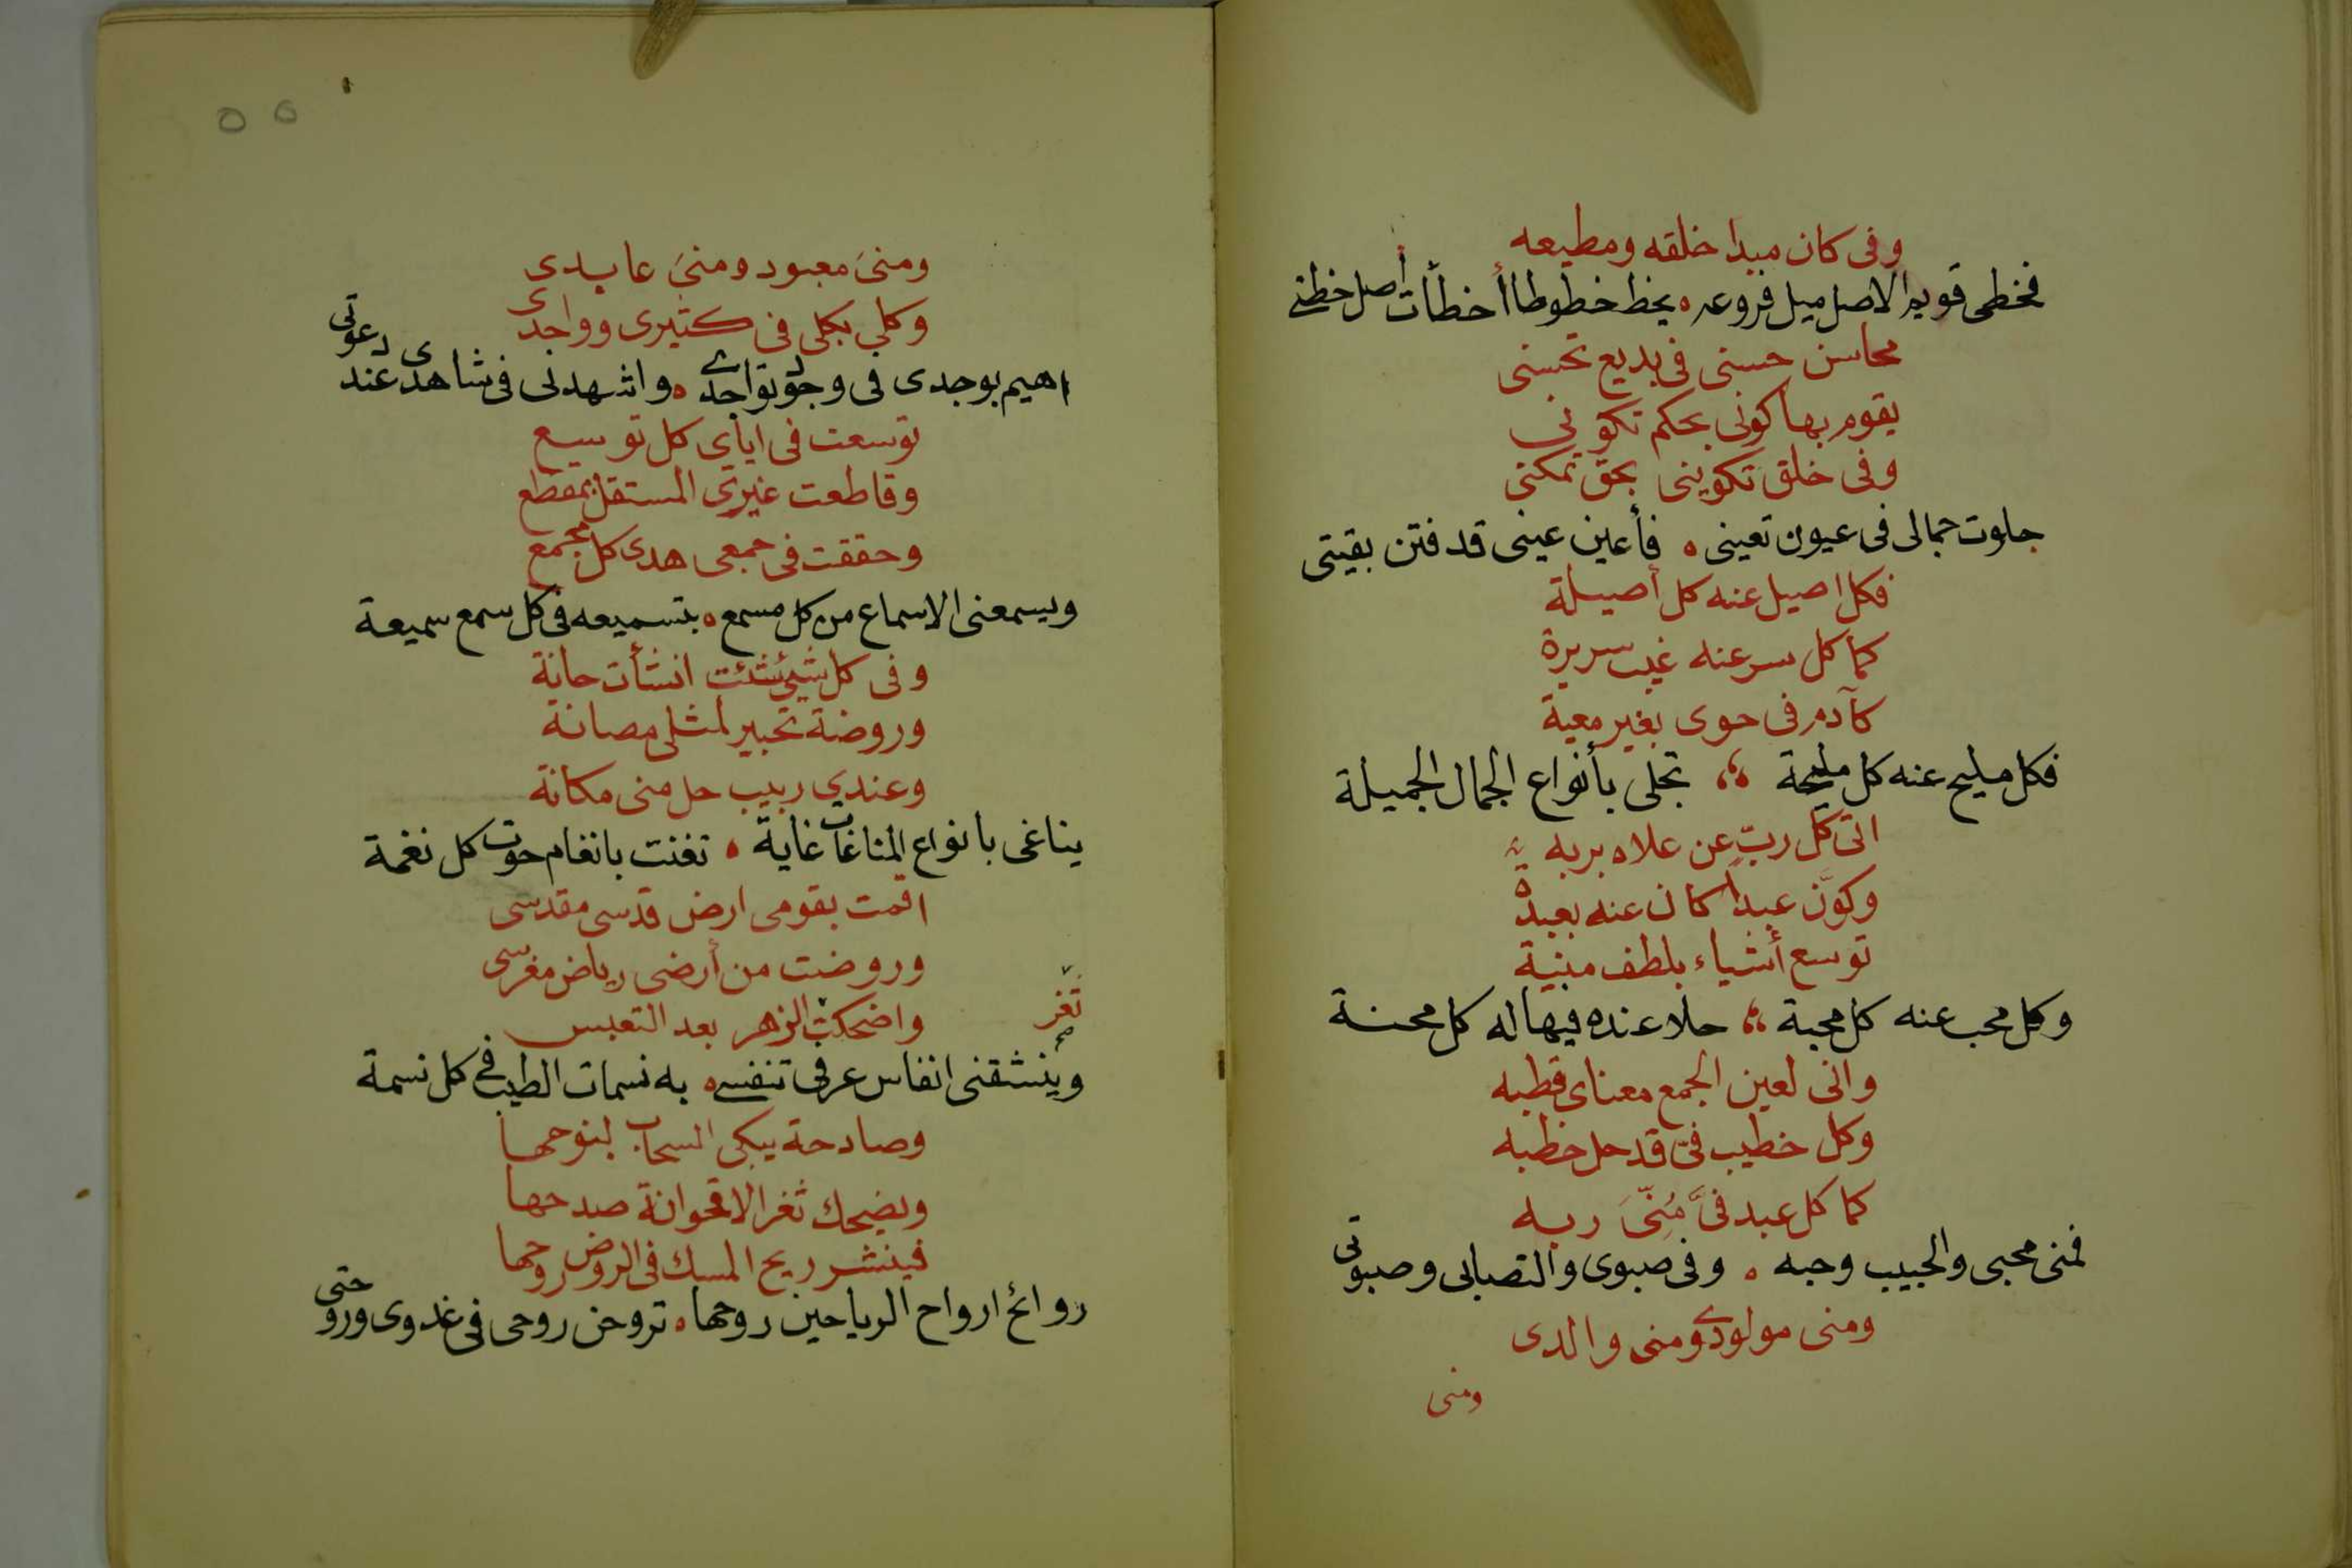 وفى كان مبدا خلقه ومطيعه
فخطى قويم الاصل ميل فروعه ه بخط خطوطا أخطأت اصل خطتى
محاسن حسنى فى بديع تحسنى
يقوم بها كونى بحكم تكونى
وفى خلق تكوينى بحق تمكنى
جلوت جمالى فى عيون تعينى ه فأعين عينى قد فتن بقيتى
فكل اصيل عنه كل أصيلة
كما كل سر عنه غيب سريرة
كآدم فى حوى بغير معية
فكل مليح عنه كل مليحة تجلى بأنواع الجمال الجميلة
اتى كل ربّ عن علاه بربه
وكوّن عبداً كان عنه بعبدة
توسع أشياء بلطف مبنية
وكل محب عنه كل محبة حلا عنده فيها له كل محنة
وانى لعين الجمع معناى قطبه
وكل خطيب فىّ قد حل خطبه
كما كل عبد فىَّ مُنّىَ ربه
فمنى محبى والحبيب وحبه ه وفى صبوى والتصابى وصبوتى
ومنى مولودى ومنى والدى
ومنى
٥٥
ومنىَ معبود ومنىَ عابدى
وكلي بكلى فى كثيرى وواجدى
اهيم بوجدى فى وجود تواجدى ه واشهد لى فى شاهدى عند دعوتى
توسعت فى اياى كل توسع
وقاطعت غيرى المستقل بمقطع
وحققت فى جمعى هدى كل مجمع
ويسمعنى الاسماع من كل مسمع ه بتسميعه فى كل سمع سميعة
وفى كل شئ شئت انشأت حانة
وروضة تحبير لمثلى مصانة
وعندى ربيب حل منى مكانة
يناغى بانواع المناغات غاية ه تغنت بانغام حوت كل نغمة
اقمت بقومى ارض قدسى مقدسى
وروضت من أرضى رياض مغرسى
واضحكت الزهر بعد التعبس
ثغر
وينشقنى انفاس عرفى تنفسى ه به نسمات الطيب فى كل نسمة
وصادحة يبكى السحاب لنوحها
ويضحك ثغر الاقحوانة صدحها
فينشر ريح المسك فى الروض روحها
روائح ارواح الرياحين روحها ه تروحن روحى فى غدوى وروحتى